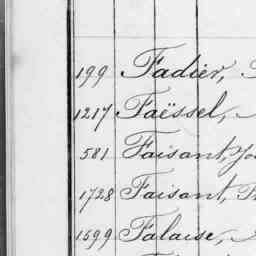 199 Fadier,
1217 Faëssel,
581 Faisant, Jo
1728 Faisant,
1599 Falaise,